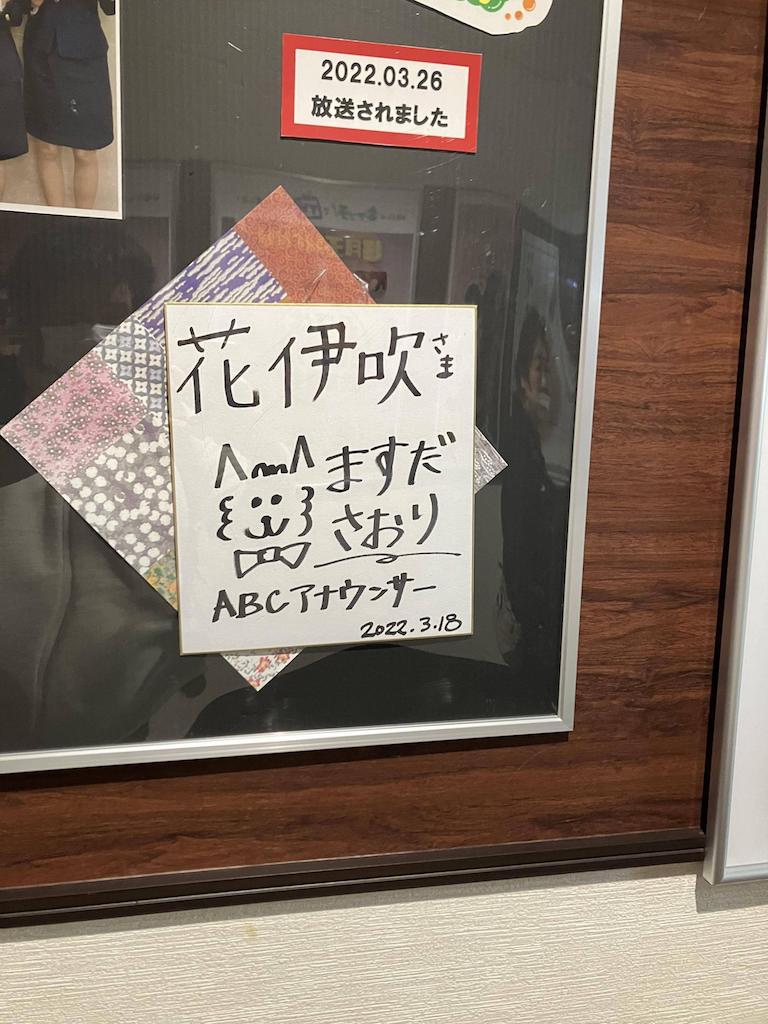 2022.03.26
放送されました
花伊吹さま
ますだ
さおり
ABCアナウンサー
2022.3.18